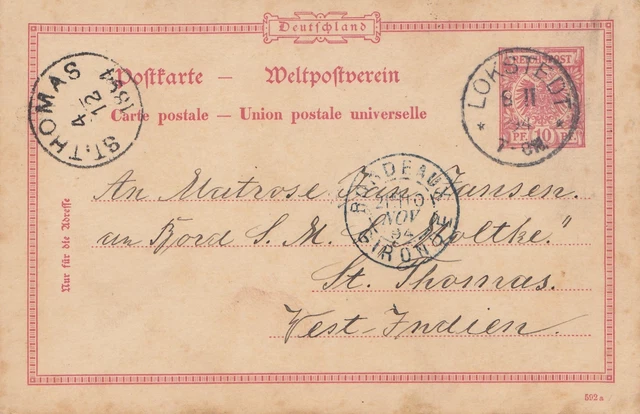 Deutschland
Postkarte — Weltpostverein
Carte postale — Union postale universelle
REICHSPOST
PF 10 PF
LOKSTEDT
11
7-8N
ST. THOMAS
4
12
1894
BORDEAUX
NOV
94
GIRONDE
Nur für die Adresse
An Matrose Jan Jansen.
an Bord S. M. S. "Moltke"
St. Thomas.
West-Indien.
592 a